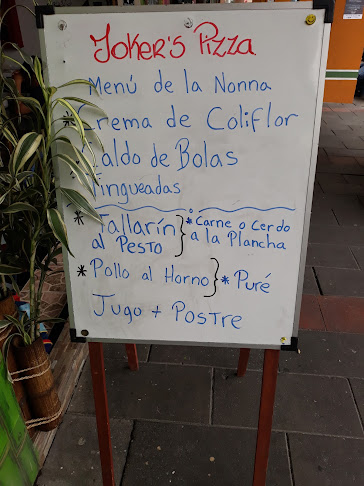 Joker's Pizza
Menú de la Nonna
* Crema de Coliflor
Caldo de Bolas
Tingueadas
* Tallarín } * Carne o Cerdo
al Pesto } a la Plancha
* Pollo al Horno } * Puré
Jugo + Postre